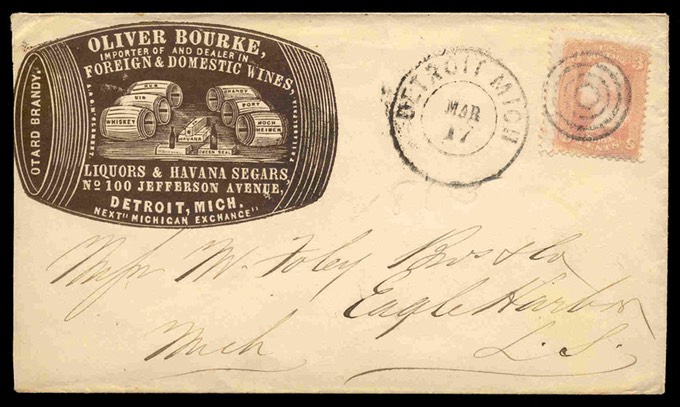 OLIVER BOURKE,
IMPORTER OF AND DEALER IN
FOREIGN & DOMESTIC WINES,
OTARD BRANDY.
RUM
GIN
WHISKEY
BRANDY
PORT
HOCH
HEIMER
HAVANA
GREEN SEAL
LIQUORS & HAVANA SEGARS,
No 100 JEFFERSON AVENUE,
DETROIT, MICH.
NEXT "MICHIGAN EXCHANGE"
DETROIT MICH
MAR
17
Messrs M. Foley Bros & Co
Eagle Harbor
Mich L. S.